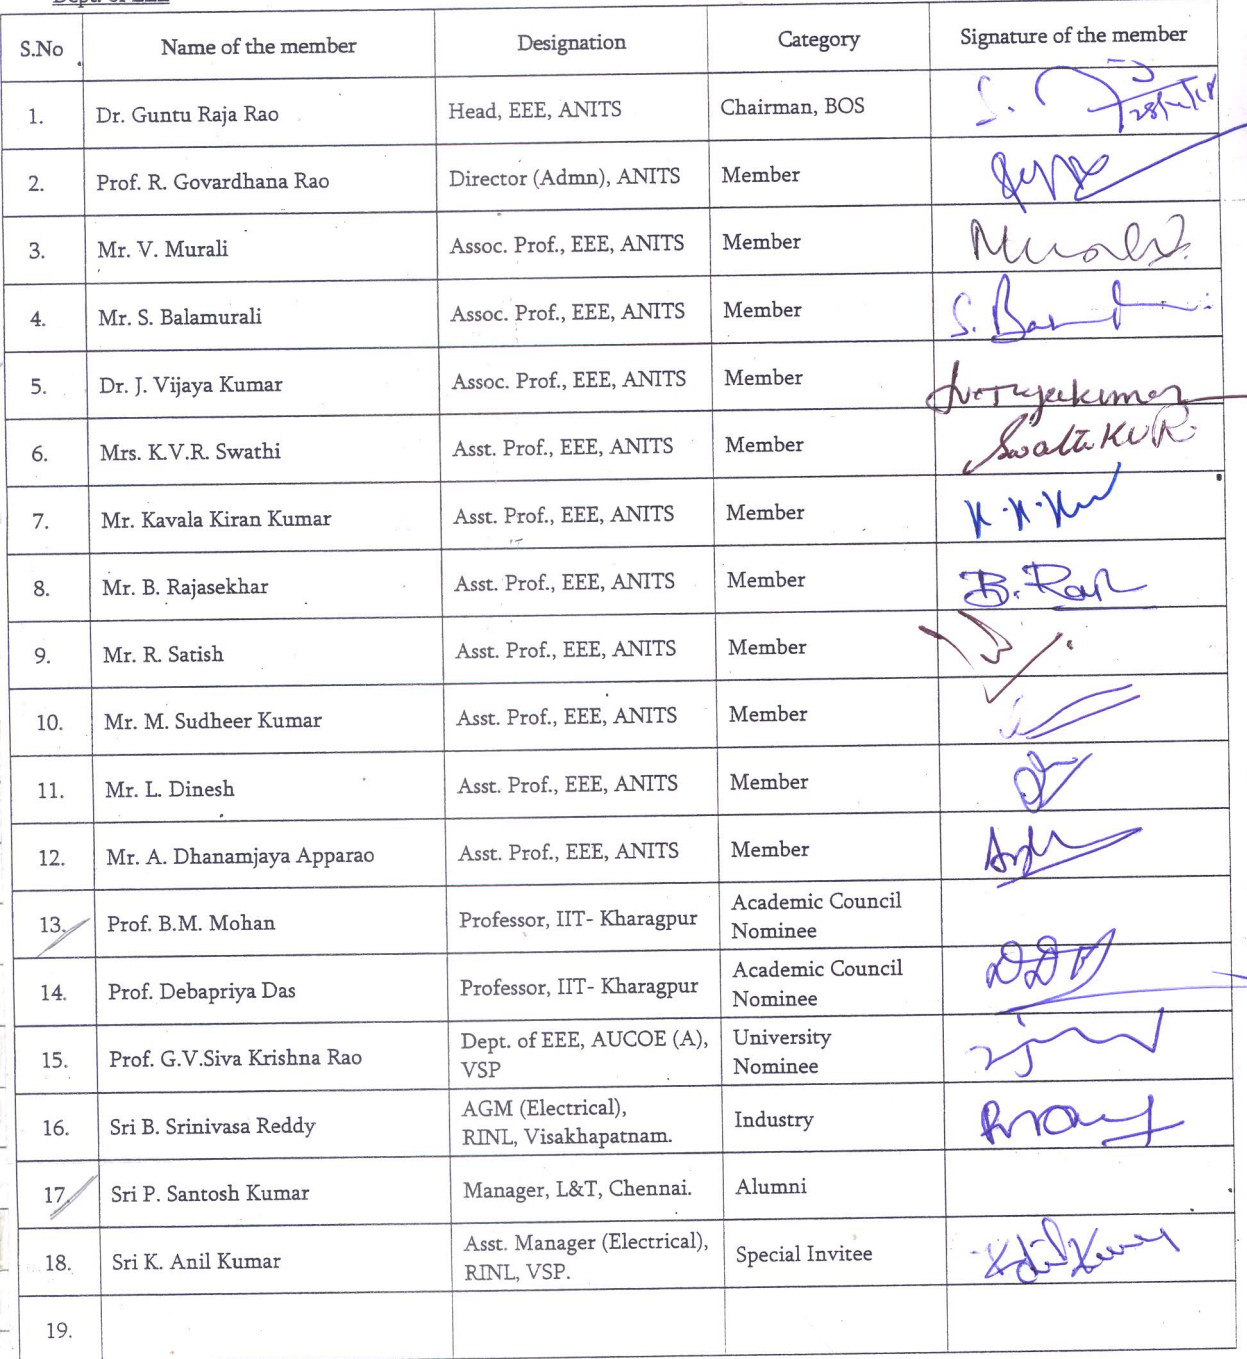 Dept. of EEE
S.No Name of the member Designation Category Signature of the member
1. Dr. Guntu Raja Rao Head, EEE, ANITS Chairman, BOS
2. Prof. R. Govardhana Rao Director (Admn), ANITS Member
3. Mr. V. Murali Assoc. Prof., EEE, ANITS Member
4. Mr. S. Balamurali Assoc. Prof., EEE, ANITS Member
5. Dr. J. Vijaya Kumar Assoc. Prof., EEE, ANITS Member
6. Mrs. K.V.R. Swathi Asst. Prof., EEE, ANITS Member
7. Mr. Kavala Kiran Kumar Asst. Prof., EEE, ANITS Member
8. Mr. B. Rajasekhar Asst. Prof., EEE, ANITS Member
9. Mr. R. Satish Asst. Prof., EEE, ANITS Member
10. Mr. M. Sudheer Kumar Asst. Prof., EEE, ANITS Member
11. Mr. L. Dinesh Asst. Prof., EEE, ANITS Member
12. Mr. A. Dhanamjaya Apparao Asst. Prof., EEE, ANITS Member
13. Prof. B.M. Mohan Professor, IIT- Kharagpur Academic Council
Nominee
14. Prof. Debapriya Das Professor, IIT- Kharagpur Academic Council
Nominee
15. Prof. G.V.Siva Krishna Rao Dept. of EEE, AUCOE (A),
VSP University
Nominee
16. Sri B. Srinivasa Reddy AGM (Electrical),
RINL, Visakhapatnam. Industry
17. Sri P. Santosh Kumar Manager, L&T, Chennai. Alumni
18. Sri K. Anil Kumar Asst. Manager (Electrical),
RINL, VSP. Special Invitee
19.